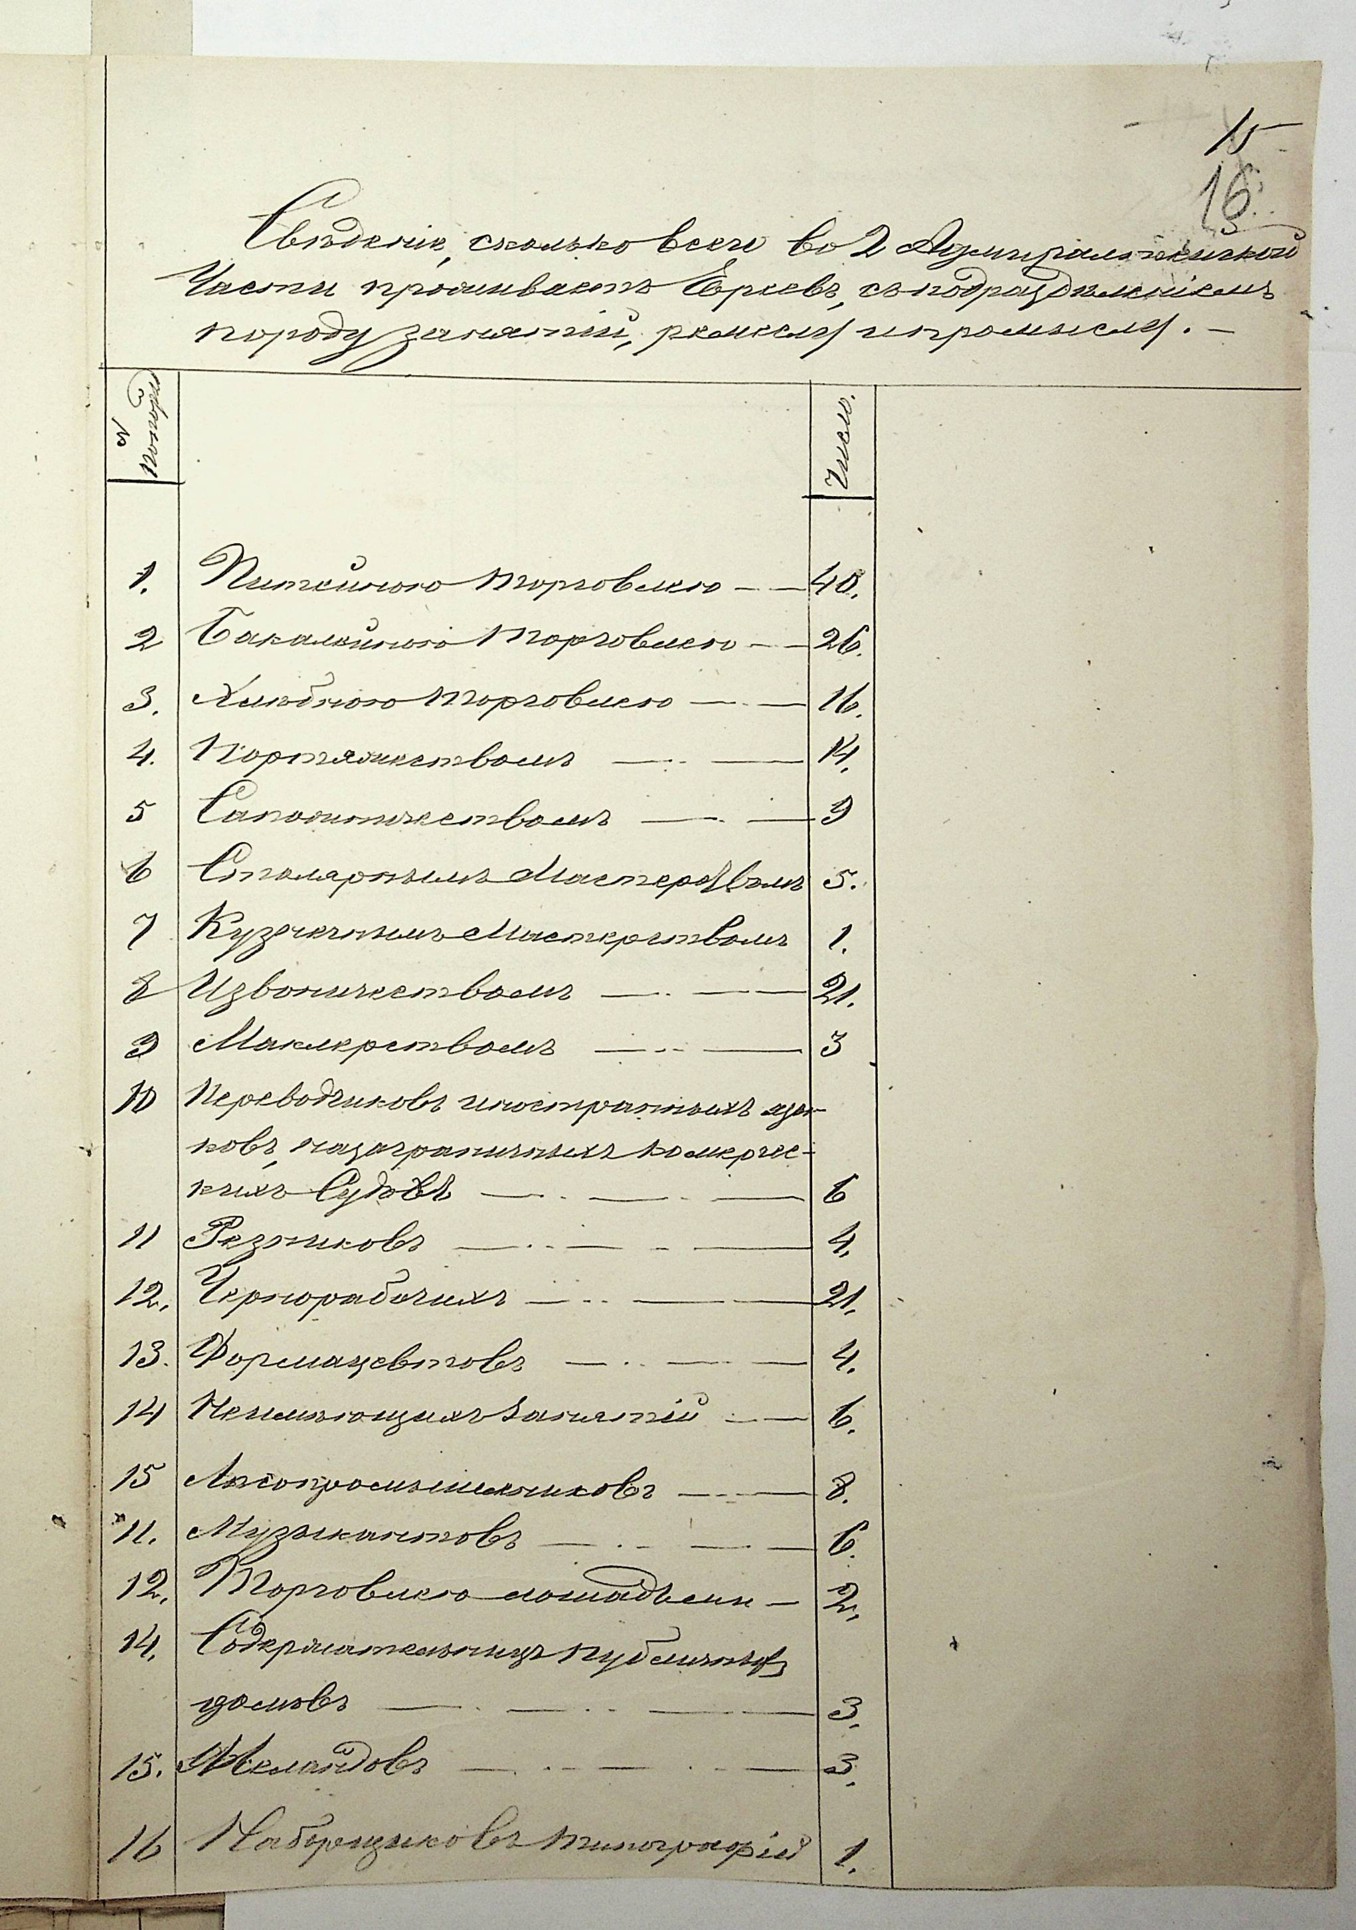 15
16.
Свѣдѣніе, сколько всего во 2 Адмиралтейской
Части проживаетъ Евреевъ, съ подраздѣленіемъ
по роду занятій, ремеслу и промыслу. —
№
Попорядку
Число.
1. Питейною торговлею — — 40.
2 Бакалейною торговлею — — 26.
3. Хлѣбною торговлею — — 16.
4. Портяжествомъ — — 14.
5 Сапожничествомъ — — 9
6 Столярнымъ Мастерствомъ 5.
7 Кузнечнымъ Мастерствомъ 1.
8 Извоничествомъ — — 21.
9 Маклерствомъ — — 3
10 Переводчиковъ иностранныхъ язы-
ковъ, назаграничныхъ комерчес-
кихъ Судовъ — — — 6
11 Резниковъ — — — 4.
12. Чернорабочихъ — — — 21.
13. Формацевтовъ — — — 4.
14 Неимѣющихъ Занятій — — 6.
15 Лѣсопромышлениковъ — — 8.
11. Музыкантовъ — — — 6.
12. Торговлею лошадьми — 2.
14. Содержательницъ публичных
домовъ — — — — 3.
15. Меламдовъ — — — — 3.
16 Наборщиковъ типографій 1.